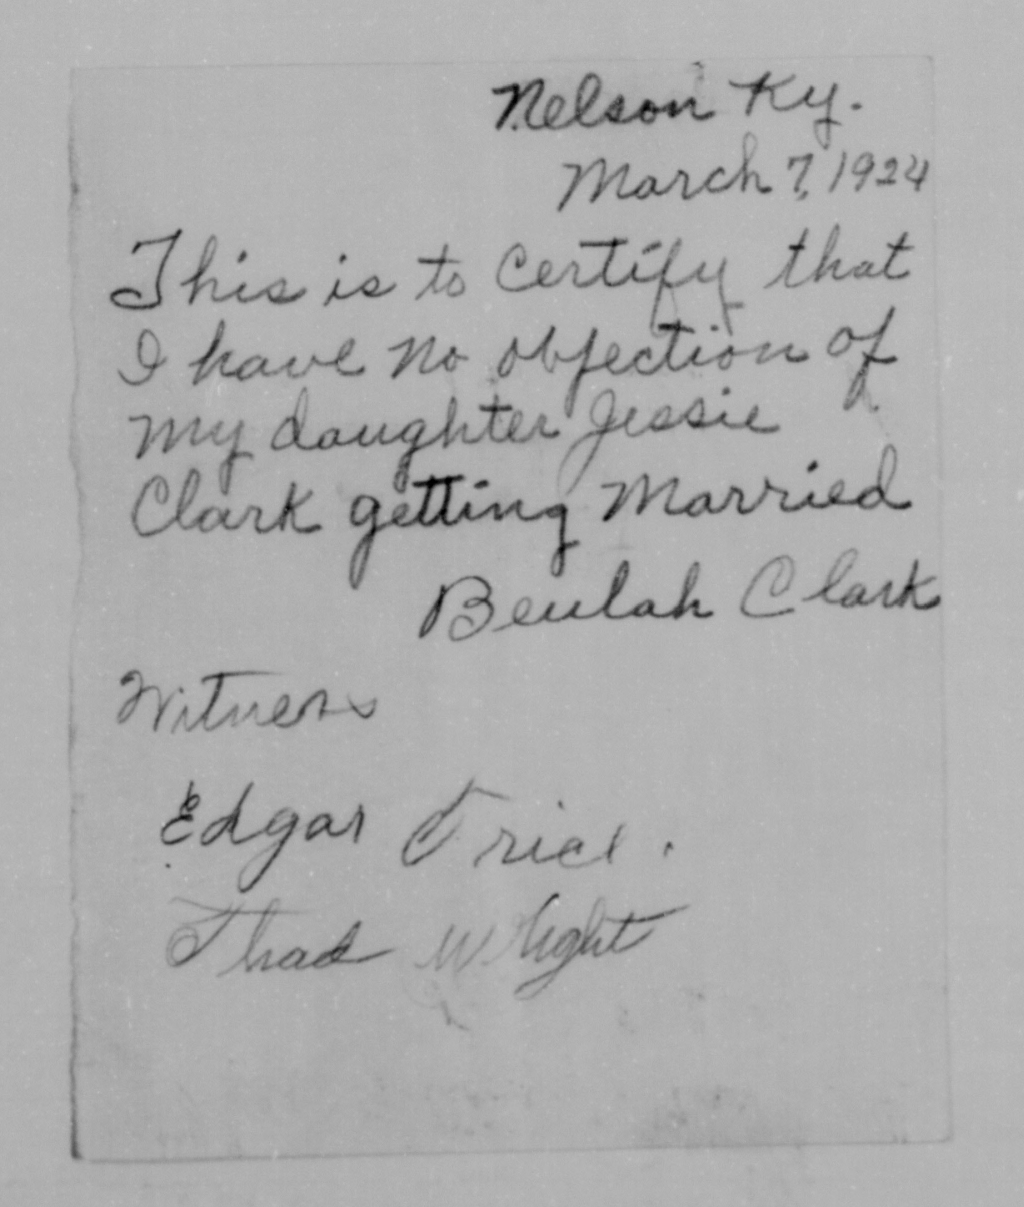 Nelson Ky.
March 7, 1924
This is to certify that
I have no objection of
my daughter Jessie
Clark getting Married
Beulah Clark
Witness
Edgar Trice.
Thad Wright